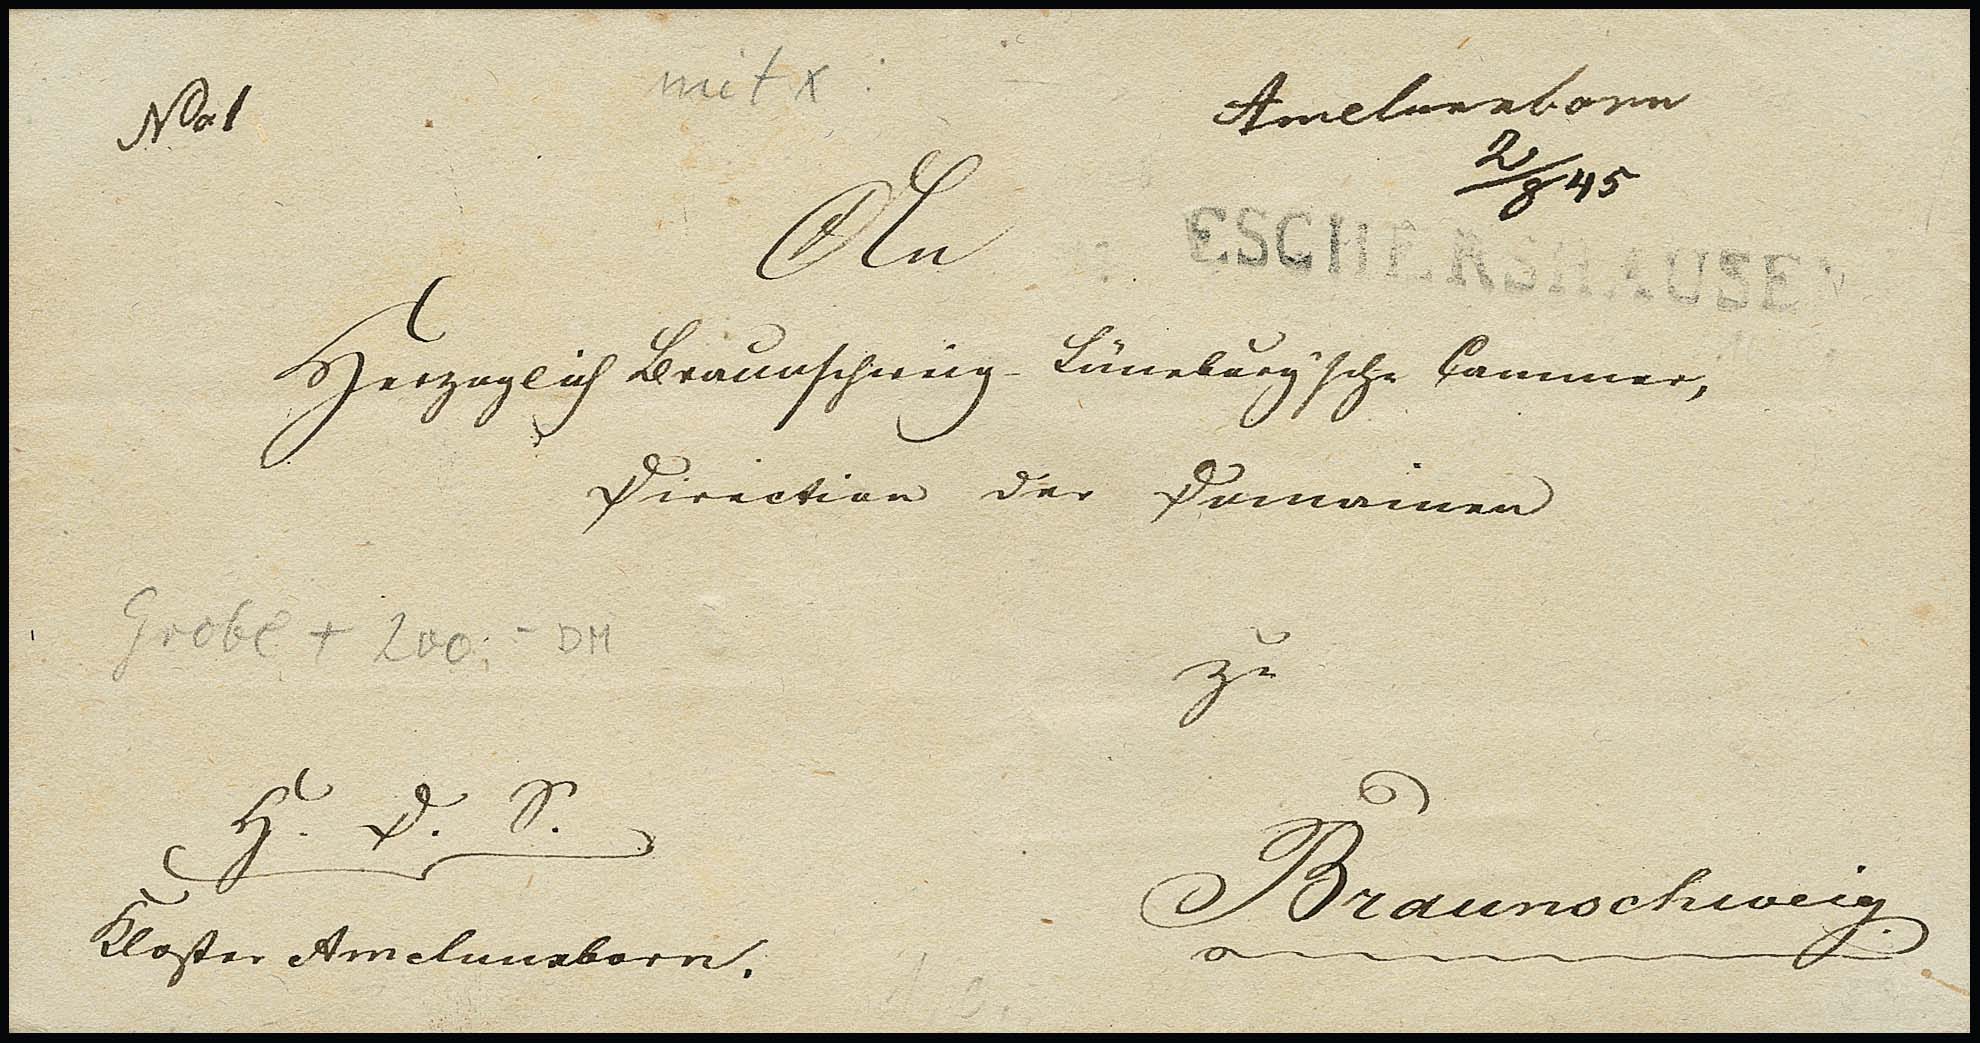 mit x
No 1
Amelunxborn
2/8 45
An
ESCHERSHAUSEN
Herzoglich Braunschweig-Lüneburg'sche Cammer,
Direction der Domainen
Grobe + 200,- DM
zu
H. D. S.
Braunschweig.
Kloster Amelunxborn.